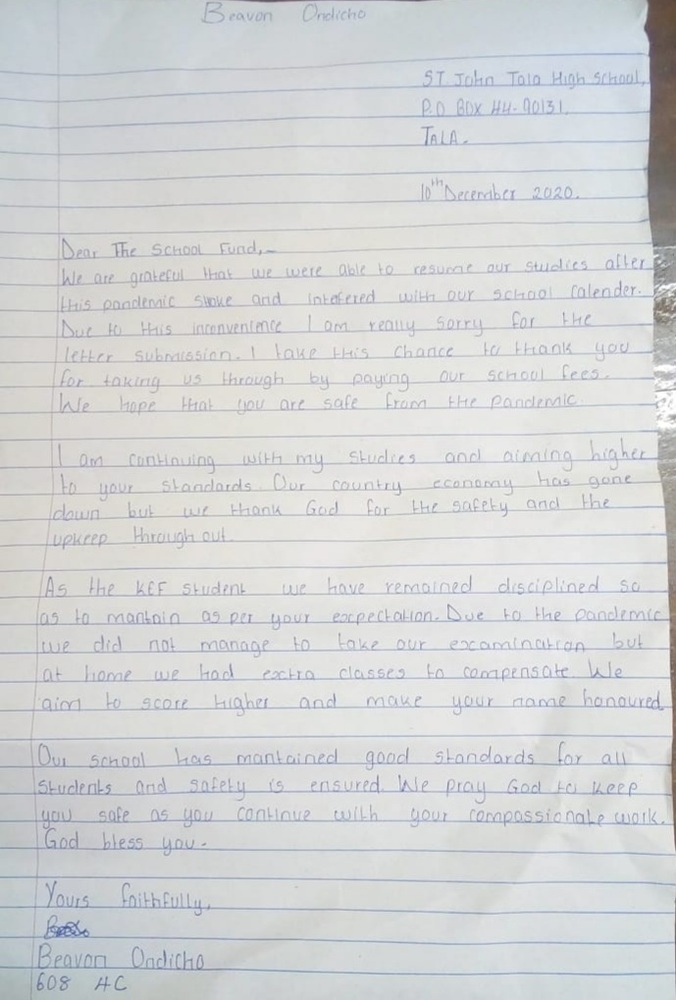 Beavon Ondicho
ST. John Tala High School,
P.O BOX 44-90131.
TALA.
10th December 2020.
Dear The School Fund,-
We are grateful that we were able to resume our studies after
this pandemic stroke and intefered with our school calender.
Due to this inconvenience I am really sorry for the
letter submission. I take this chance to thank you
for taking us through by paying our school fees.
We hope that you are safe from the pandemic.
I am continuing with my studies and aiming higher
to your standards. Our country economy has gone
down but we thank God for the safety and the
upkeep through out.
As the KEF student we have remained disciplined so
as to mantain as per your expectation. Due to the pandemic
we did not manage to take our examination but
at home we had extra classes to compensate. We
aim to score higher and make your name honoured.
Our school has mantained good standards for all
students and safety is ensured. We pray God to keep
you safe as you continue with your compassionate work.
God bless you.
Yours faithfully,
Beavon Ondicho
608 4C